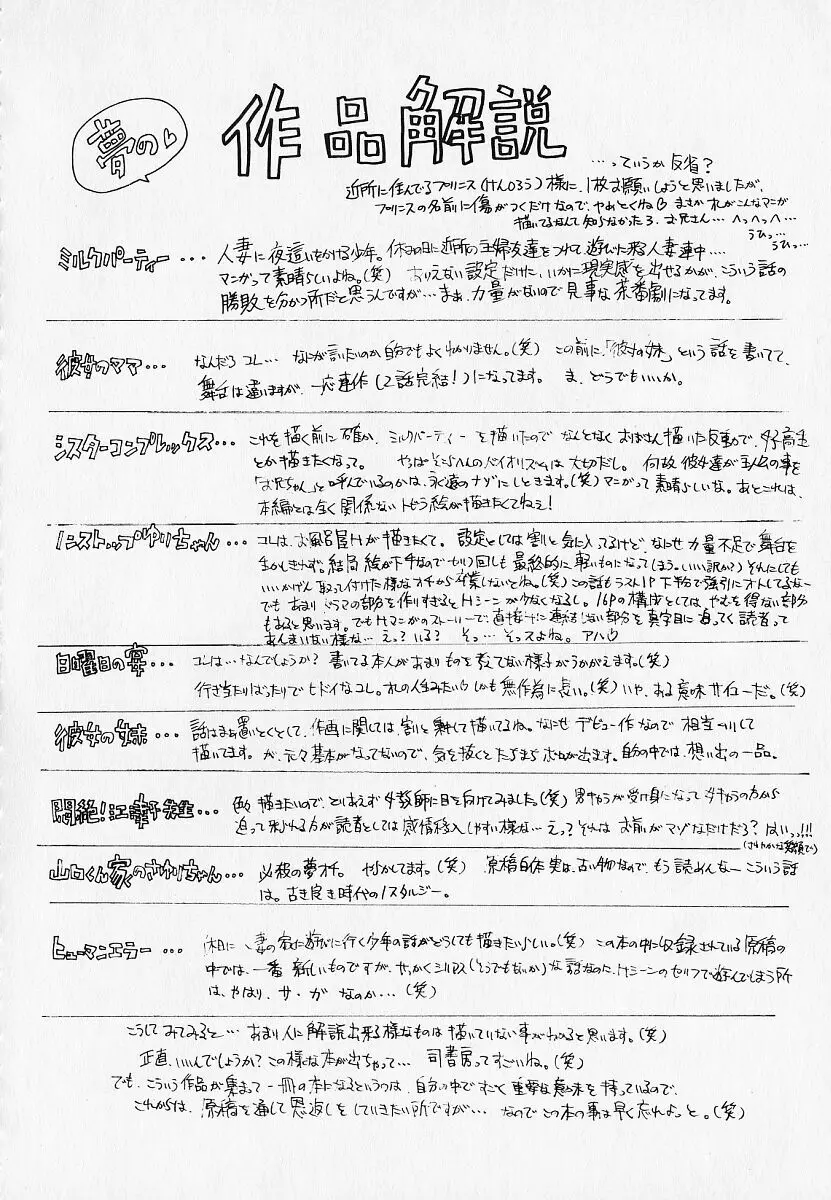 夢の
作品解説
…っていうか反省?
近所に住んでるプリンス(けんじろう)様に、1枚お願いしようと思いましたが、
プリンスの名前に傷がつくだけなので、やめとくね まさかオレがこんなマンガ
描いてるなんて知らなかたろ、お兄さん…へっへっへ…
うひっ…
うひっ…
ミルクパーティー… 人妻に夜這いをかける少年。休みの日に近所の主婦友達をつれて遊びに来る人妻連中…
マンガって素晴らしいよね。(笑) ありえない設定だけに、いかに現実感を出せるかが、こういう話の
勝敗を分かつ所だと思うんですが…まぁ、力量がないので見事な茶番劇になってます。
彼女のママ… なんだろコレ… なにが言いたいのか自分でもよくわかりません。(笑) この前に、「彼女の妹」という話を書いてて、
舞台は違いますが、一応連作(2話完結!)になってます。 ま、どうでもいいか。
シスターコンプレックス… これを描く前に確か、ミルクパーティーを描いたので なんとなくおばさん描いた反動で、女子高生
とか描きたくなって。 やっぱそこらへんのバイオリズムは大切だし。 何故彼女達が主人公の事を
「お兄ちゃん」と呼んでいるのかは、永遠のナゾにしときます。(笑)マンガって素晴らしいな。あとこれは、
本編とは全く関係ないトビラ絵が描きたくてねぇ!
ノンストップゆりちゃん… コレは、お風呂屋Hが描きたくて。 設定としては割と気に入ってるけど、なにせ力量不足で舞台を
生かしきれず。結局絵が下手なのでセリフ回しも最終的に軽いものになってしまう。(いい訳か?)それにしても
いいかげん取って付けた様なオチから卒業しないとね。(笑)この話もラスト1P下ネタで強引にオトしてるなー
でもあまりドラマの部分を作りすぎるとHシーンが少なくなるし。16Pの構成としては、やむを得ない部分
もあると思います。でもHマンガのストーリーで、直接Hに連結しない部分を真面目に追ってく読者って
あんまいない様な… えっ?いる? そっ…そっスよね。アハ
日曜日の寝… コレは…なんでしょうか? 書いてる本人があまりものを考えてない様子がうかがえます。(笑)
行き当たりばったりでヒドイなコレ。オレの人生みたい しかも無作為に長い。(笑)いや、ある意味サイコーだ。(笑)
彼女の妹… 話はまぁ置いとくとして、作画に関しては割と頑張って描いてるね。なにせデビュー作なので相当
描いてます。が、元々基本がなってないので、気を抜くとたちまちボロが出ます。自分の中では、想い出の一品。
悶絶!江幸子先生… 色々描きたいので、とりあえず女教師に目を向けてみました。(笑) 男キャラが受け身になって女キャラの方から
迫って来られる方が読者としては感情移入しやすい様な…えっ?それは お前がマゾなだけだろ? はいっっ!!!
(さわやかな笑顔で)
山口くん家のさゆりちゃん… 必殺の夢オチ。 やらかしてます。(笑) 原稿自体実は、古い物なので、もう読めんなーこういう話
は。古き良き時代のノスタルジー。
ヒューマンエラー… 人妻の家に遊びに行く少年の話がどうしても描きたいらしい。(笑) この本の中に収録されている原稿の
中では、一番新しいものですが、せっかくシリアス(そうでもないか)な話なのに、Hシーンのセリフで遊んでしまう所
は、やはり、サ・ガなのか…(笑)
こうしてみてみると… あまり人に解説出来る様なものは描いていない事がわかると思います。(笑)
正直、いいんでしょうか?この様な本が出ちゃって… 司書房ってすごいね。(笑)
でも、こういう作品が集まって一冊の本になるというのは、自分の中ですごく重要な意味を持っているので、
これからは、原稿を通して恩返しをしていきたい所ですが… なのでこの本の事は早く忘れよっと。(笑)